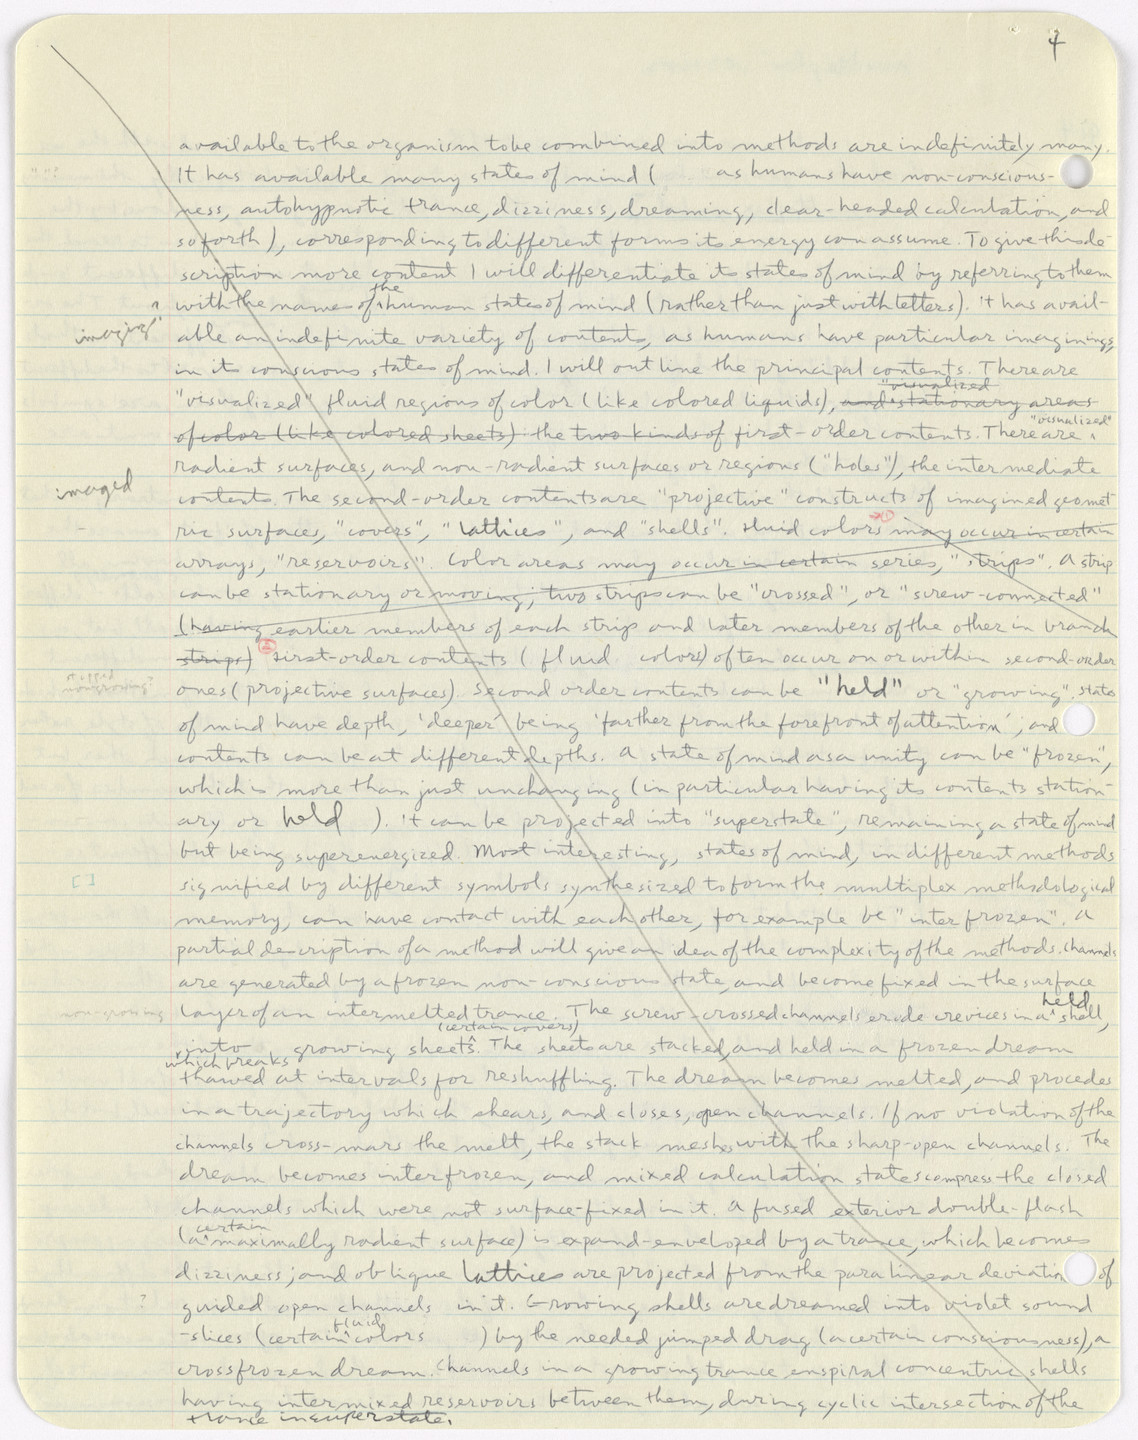 4
available to the organism to be combined into methods are indefinitely many.
It has available many states of mind ( as humans have non-conscious-
ness, autohypnotic trance, dizziness, dreaming, clear-headed calculation, and
so forth), corresponding to different forms its energy can assume. To give this de-
scription more content I will differentiate its states of mind by referring to them
the
with the names of human states of mind (rather than just with letters). It has avail-
imaging?
able an indefinite variety of contents, as humans have particular imaginings,
in its conscious states of mind. I will outline the principal contents. There are
"visualized
"visualized" fluid regions of color (like colored liquids), and stationary areas
"visualized"
of color (like colored sheets) the two kinds of first-order contents. There are
radient surfaces, and non-radient surfaces or regions ("holes"), the intermediate
imaged
contents. The second-order contents are "projective" constructs of imagined geomet
ric surfaces, "covers", "lattices", and "shells". Fluid colors may occur in certain
arrays, "reservoirs". Color areas may occur in certain series, "strips". A strip
can be stationary or moving; two strips can be "crossed", or "screw-connected"
(having earlier members of each strip and later members of the other in branch
strips) First-order contents ( fluid colors) often occur on or within second-order
ones (projective surfaces). Second order contents can be "held" or "growing". States
of mind have depth, 'deeper' being 'farther from the forefront of attention'; and
contents can be at different depths. A state of mind as a unity can be "frozen",
which is more than just unchanging (in particular having its contents station-
ary or held ). It can be projected into "superstate", remaining a state of mind
but being superenergized. Most interesting, states of mind, in different methods
[ ]
signified by different symbols synthesized to form the multiplex methodological
memory, can have contact with each other, for example be "interfrozen". A
partial description of a method will give an idea of the complexity of the methods. Channels
are generated by a frozen non-conscious state, and become fixed in the surface
held
non-growing
layer of an intermelted trance. The screw-crossed channels erode crevices in a shell,
(certain covers)
into growing sheets. The sheets are stacked, and held in a frozen dream
which breaks
thawed at intervals for reshuffling. The dream becomes melted, and procedes
in a trajectory which shears, and closes, open channels. If no violation of the
channels cross-mars the melt, the stack meshes with the sharp-open channels. The
dream becomes interfrozen, and mixed calculation states compress the closed
channels which were not surface-fixed in it. A fused exterior double-flash
certain
(a maximally radient surface) is expand-enveloped by a trance, which becomes
dizziness; and oblique lattices are projected from the paralinear deviation of
?
guided open channels in it. Growing shells are dreamed into violet sound
fluid
-slices (certain colors ) by the needed jumped drag (a certain consciousness), a
crossfrozen dream. Channels in a growing trance enspiral concentric shells
having intermixed reservoirs between them, during cyclic intersection of the
trance in superstate.